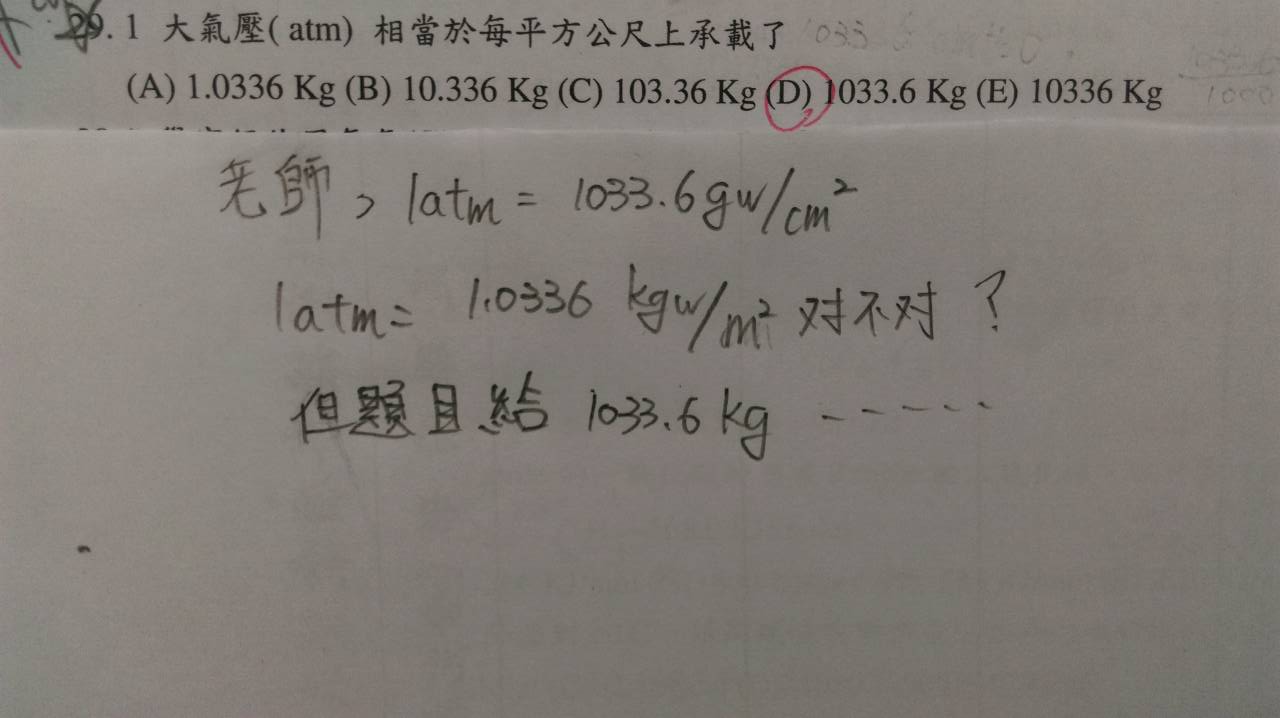 29. 1 大氣壓( atm) 相當於每平方公尺上承載了
(A) 1.0336 Kg (B) 10.336 Kg (C) 103.36 Kg (D) 1033.6 Kg (E) 10336 Kg
老師, 1atm = 1033.6gw/cm²
1atm= 1.0336 kgw/m² 对不对 ?
但題目給 1033.6 kg -----